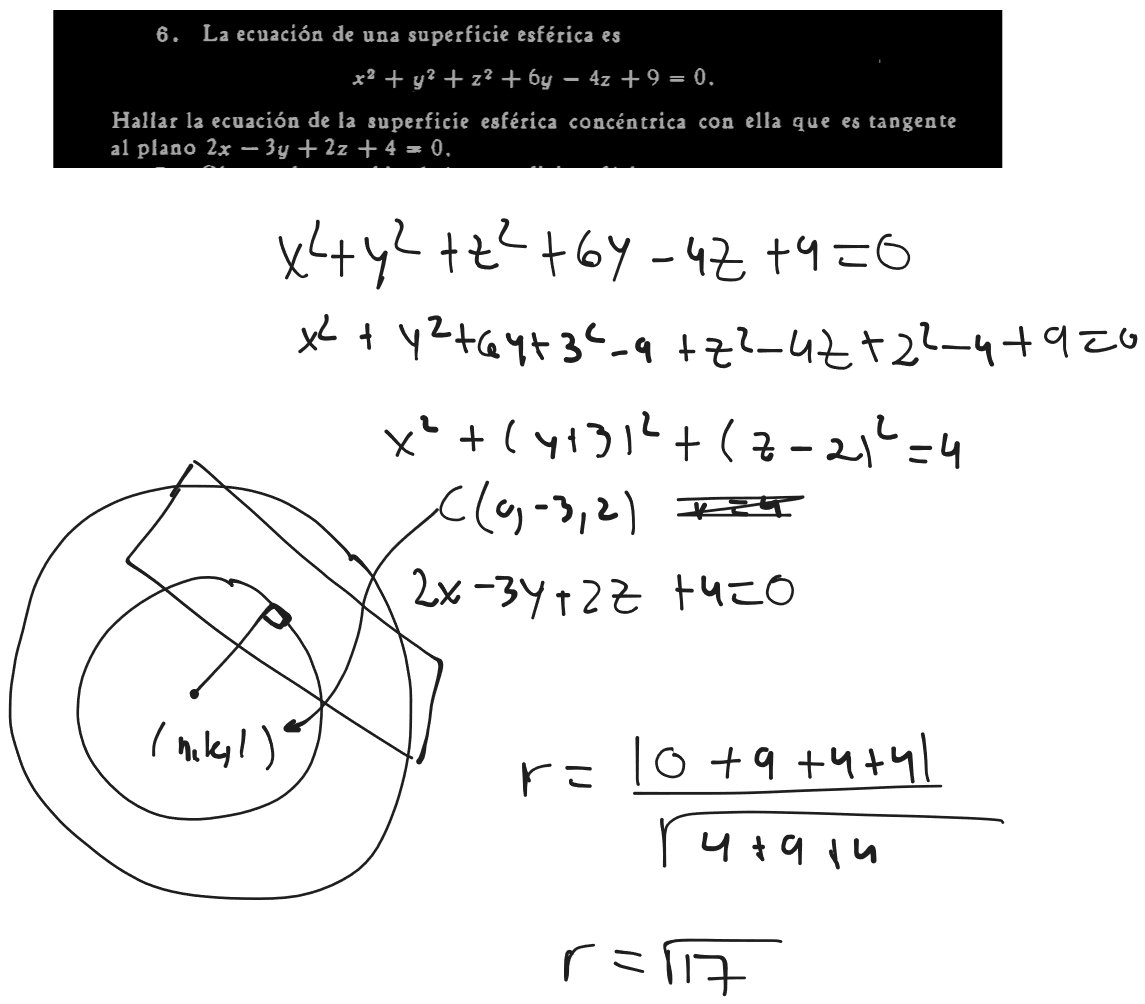 6. La ecuación de una superficie esférica es
x² + y² + z² + 6y − 4z + 9 = 0.
Hallar la ecuación de la superficie esférica concéntrica con ella que es tangente
al plano 2x − 3y + 2z + 4 = 0.
x² + y² + z² + 6y − 4z + 9 = 0
x² + y² + 6y + 3² − 9 + z² − 4z + 2² − 4 + 9 = 0
x² + (y+3)² + (z − 2)² = 4
C(0, −3, 2)
2x − 3y + 2z + 4 = 0
(h, k, l)
r = |0 + 9 + 4 + 4| / √(4 + 9 + 4)
r = √17